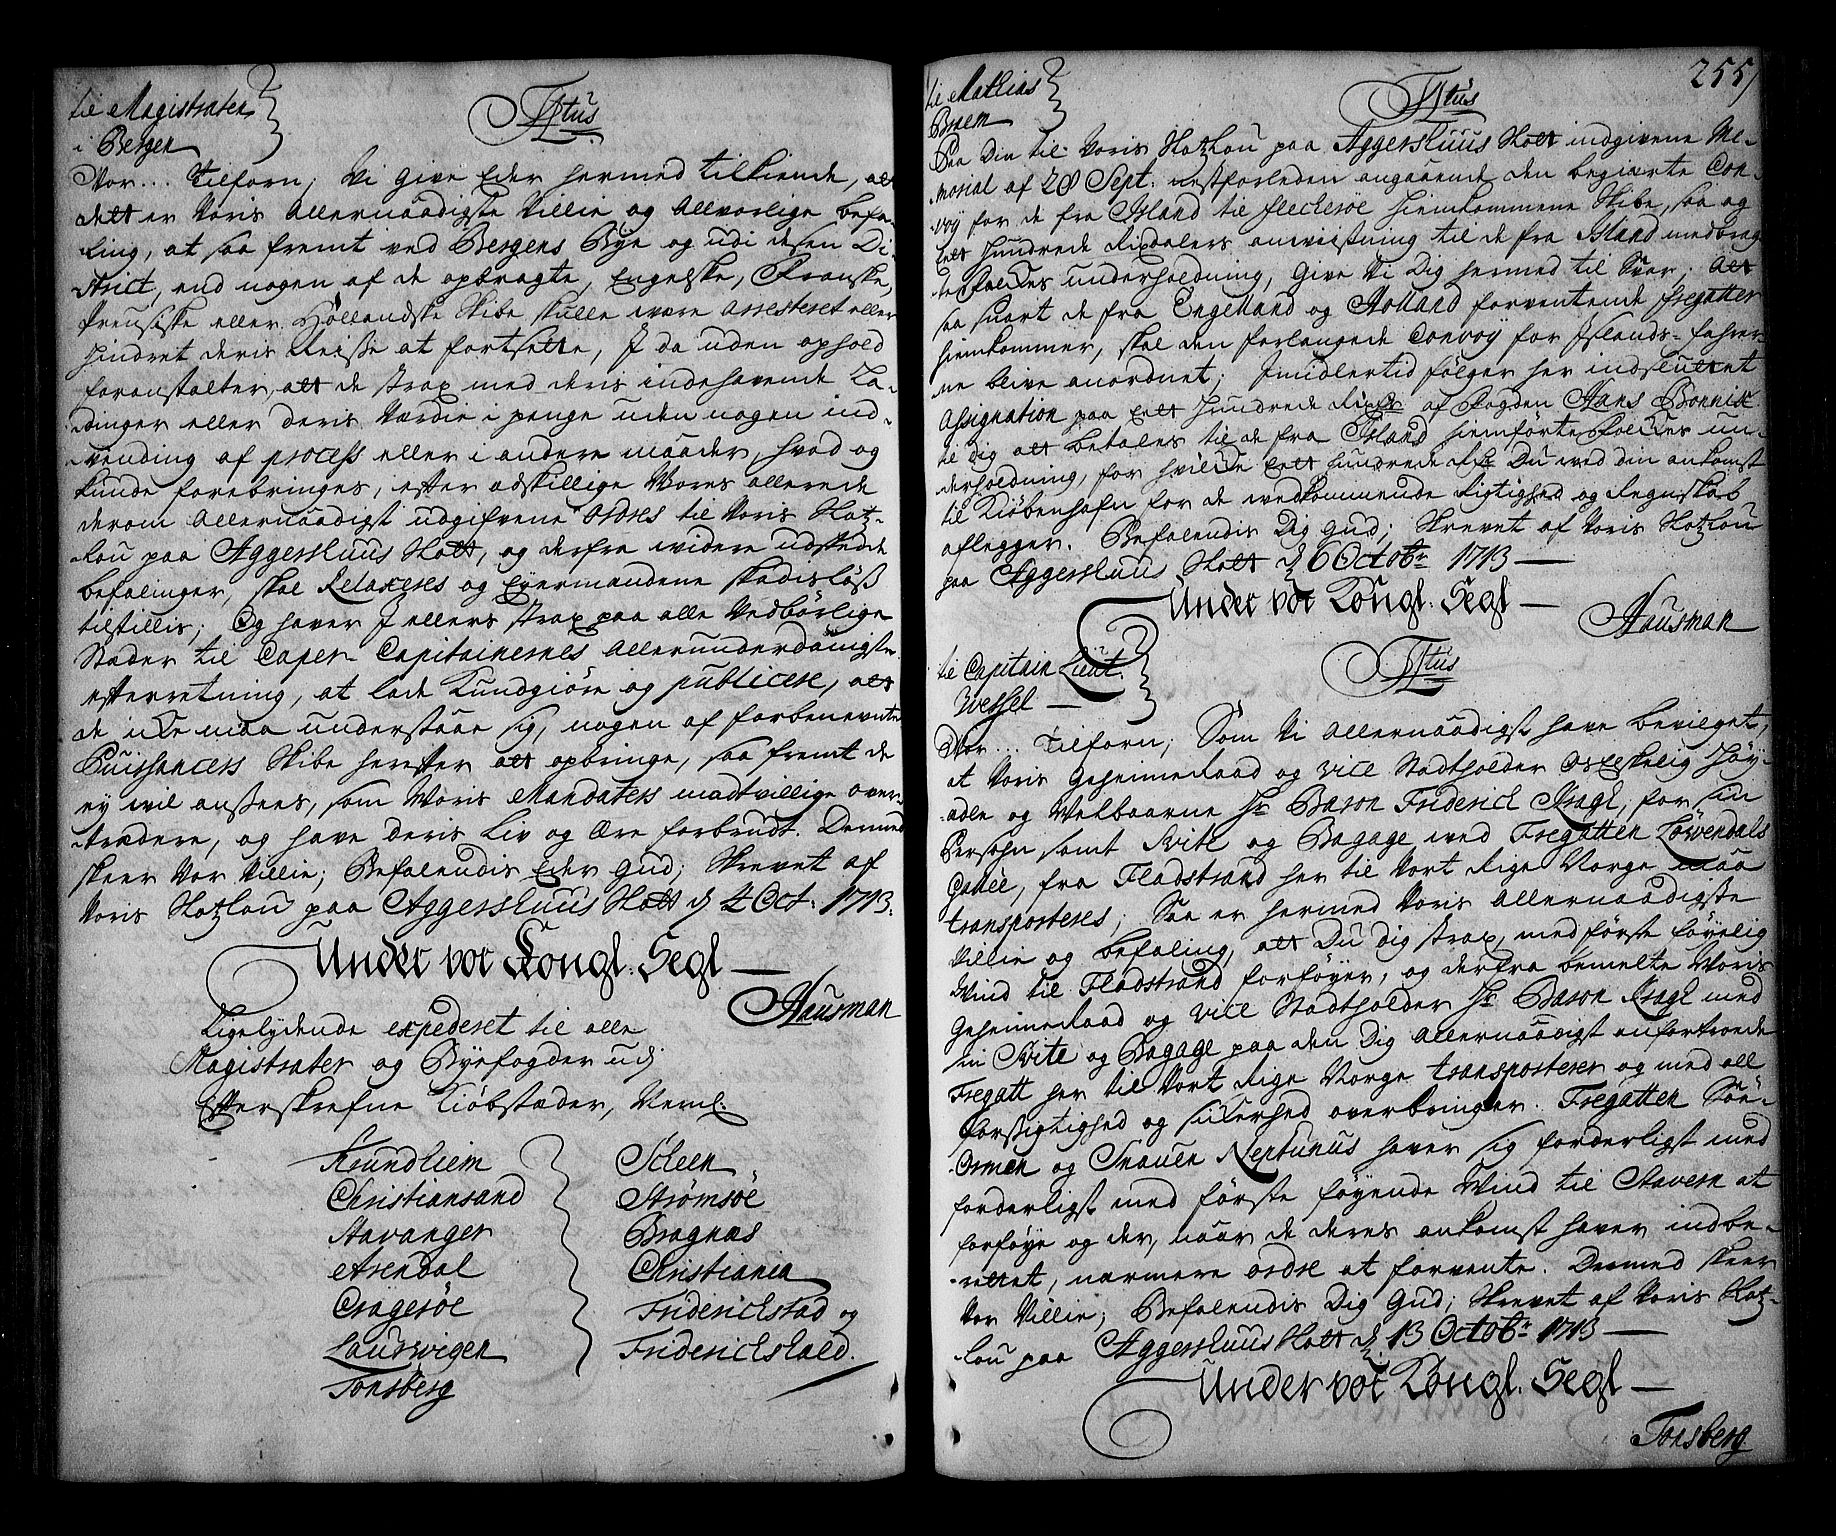 til Magistraten
i Bergen
Ttus
Vor... Tilforn; Vi give Eder hermed tilkiende, att
dett er Voris Allernaadigste Villie og Allvorlige befa-
ling, at saa fremt ved Bergens Bye og udi desen Di-
strict, end nogen af de opbragte, Engelske, Franske,
Preusiske eller Hollandske Skibe skulle være arresteret eller
hindret deris Reiße at fortsette, I da uden ophold
foranstalter, att de strax med deris indehavende La-
dinger eller deris Værdie i penge uden nogen ind-
vending af process eller i andere maader, hvad og
kunde forebringes, efter adskillige Vores allerede
derom Allernaadigst udgifvene Ordres til Voris Slotz-
lou paa Aggershuus Slott, og derfra widere udstedde
befalinger, skal Relaxeres og Eyermandene skadisløß
tilstillis; Og haver I ellers strax paa alle Vedbørlige
Stæder til Caper Capitainernes Allerunderdanigste
efterretning, at lade Kundgiøre og publicere, att
de icke maa understaae sig, nogen af forbenevnte
Puissancers Skibe herefter att opbringe, saa fremt de
ey wil ansees, som Voris Mandaters modtvillige over-
trædere, og have deris Liv og Ære forbrudt. Dermed
skeer Vor Villie; Befalendis Eder Gud; Skrevet af
Voris Slotzlou paa Aggershuus Slott d 4 Oct. 1713.
Under vor Kongl. Segl
Hausman
Ligelydende expederet til alle
Magistrater og Byefogder udj
Efterskrefne Kiøbstæder, Neml:
Trundhiem
Christiansand
Stavanger
Arendal
Cragerøe
Laurwigen
Tonsberg
Scheen
Strømsøe
Bragnæs
Christiania
Friderichstad og
Friderichshald.
255
til Mathias
Braem
Ttus
Paa Din til Voris Slotzlou paa Aggershuus Slott indgivene Me-
morial af 28 Sept. nestforleden angaaende den begierte Con-
voy for de fra Island til Fleckerøe hiemkommene Skibe, saa og
Ett Hundrede Rixdalers anviisning til de fra Island medbrag-
te Folckes underholdning, Give Vi Dig hermed til Svar; Att
saa snart de fra Engelland og Holland forventende Fregatter
hiemkommer, skal den forlangede Convoy for Islands-fahrer-
ne blive anordnet; Imidlertid følger her indsluttet
Assignation paa Ett Hundrede Rixdr af Fogden Hans Bonnik
til dig att betales til de fra Island hiemførte Folckes un-
derholdning, for hvilcke Ett Hundrede rdr Du wed din ankomst
til Kiøbenhafn for de wedkommende Rigtighed og Regnskab
aflegger. Befalendis Dig Gud; Skrevet af Voris Slotzlou
paa Aggershuus Slott d 6 Octobr 1713
Under vor Kongl. Segl
Hausman
til Capitain Lieut.
Wessel
Ttus
Vor... Tilforn; Som Vi Allernaadigst have bevilget,
at Voris Geheimeraad og vice Stadtholder Os Elskelig Høy-
ædle og Velbaarne Hr Baron Friderich Kragh, for sin
Persohn samt Svite og Bagage wed Fregatten Løvendals
Gallée, fra Fladstrand her til Vort Rige Norge maa
transporteres; Saa er hermed Voris Allernaadigste
Villie og befaling, att Du dig strax, med første føyelig
Wind til Fladstrand forføyer, og derfra bemelte Voris
Geheimeraad og vice Stadtholder Hr Baron Kragh med
sin Svite og Bagage paa den Dig Allernaadigst anfortroede
Fregatt her til Vort Rige Norge transporterer og med all
forsigtighed og sickerhed overbringer. Fregatten Søe-
Ormen og Snauen Neptunus haver sig forderligst med
forderligst med første føyende Wind til Stavern at
forføye og der, naar de deres ankomst haver indbe-
rettet, nærmere ordre at forvente. Dermed skeer
Vor Villie; Befalendis Dig Gud; Skrevet af Voris Slotz-
lou paa Aggershuus Slott d. 13 Octobr 1713
Under vor Kongl. Segl
Tonsberg